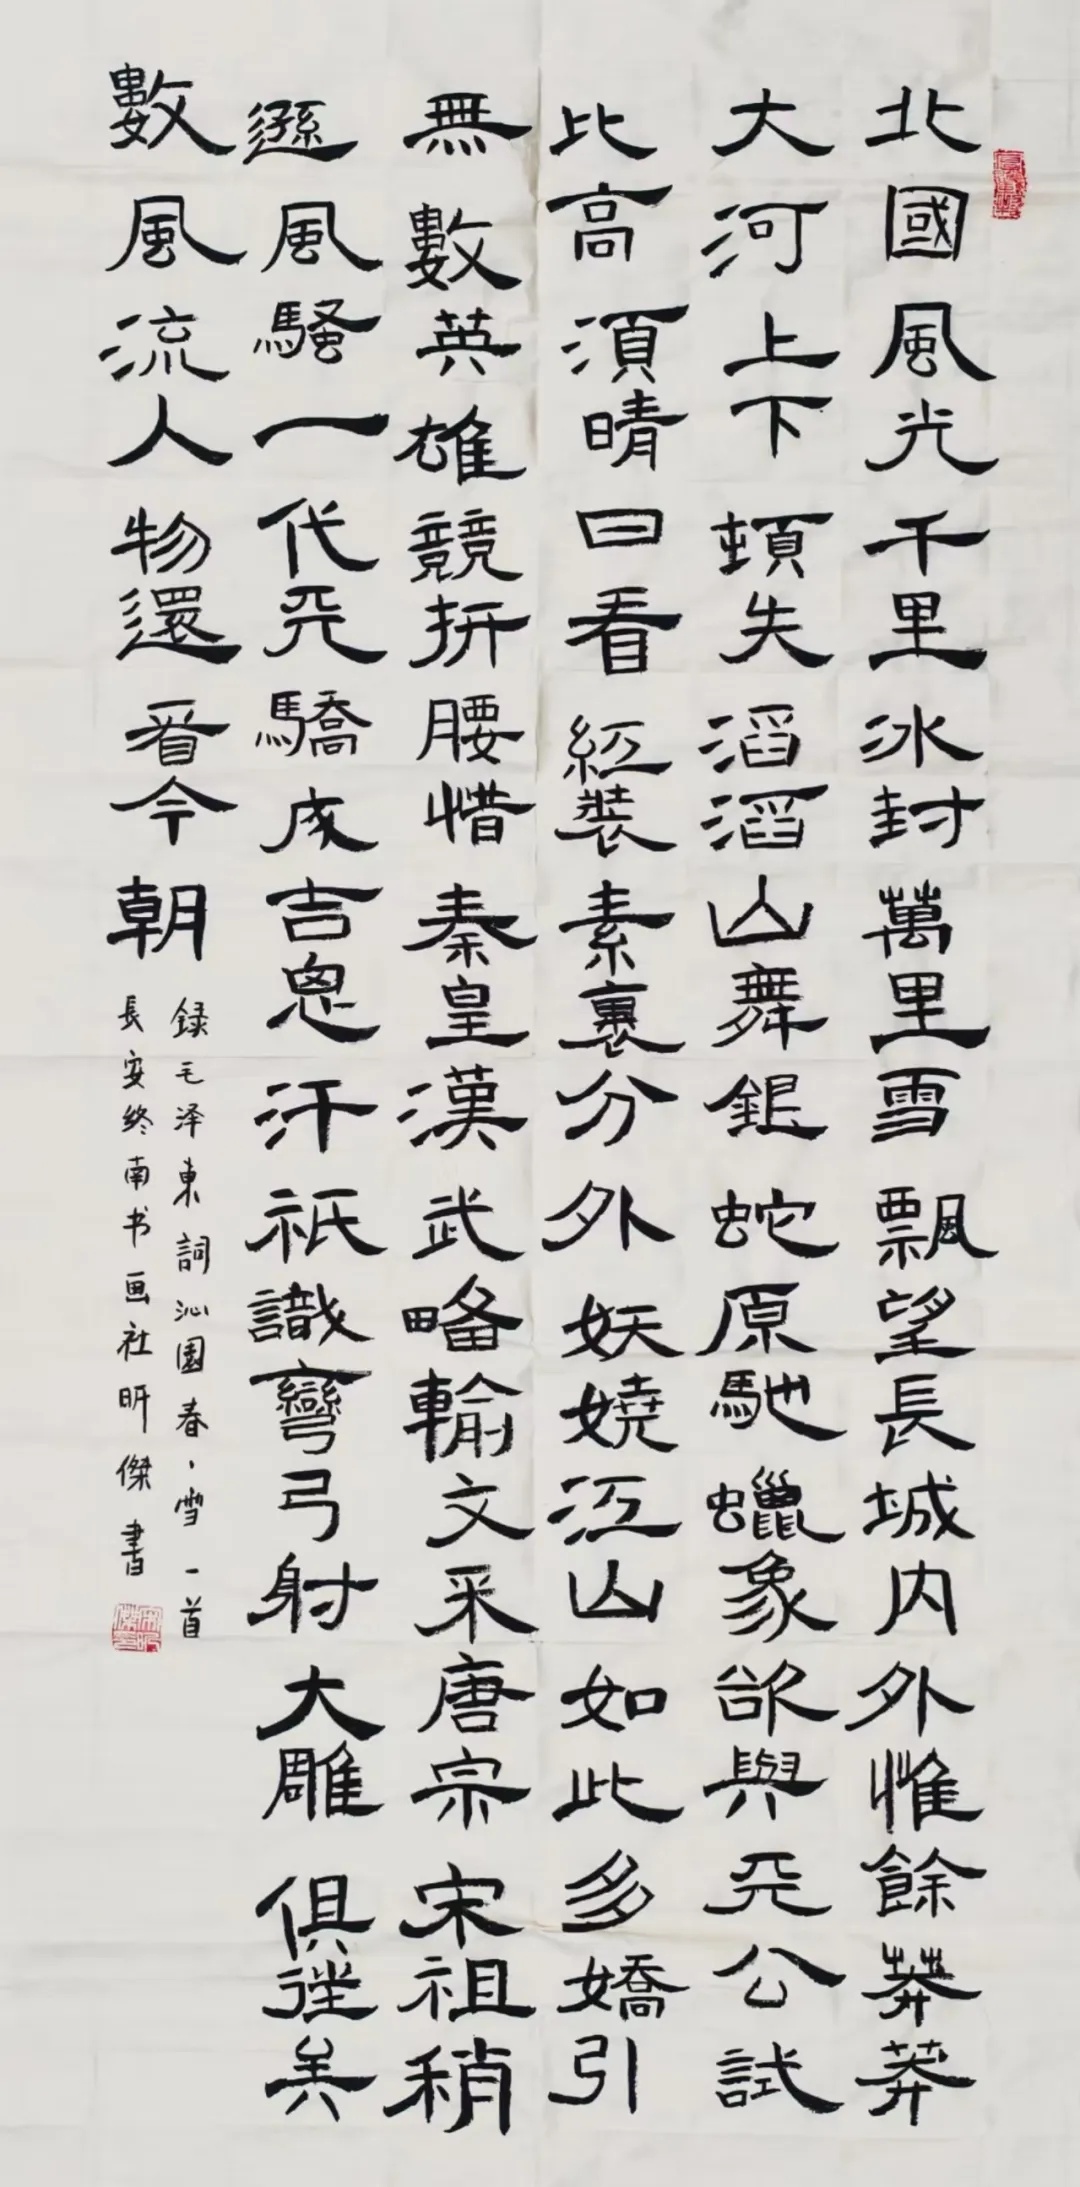 北國風光千里冰封萬里雪飄望長城内外惟餘莽莽
大河上下頓失滔滔山舞銀蛇原馳蠟象欲與天公試
比高須晴日看紅裝素裹分外妖嬈江山如此多嬌引
無數英雄競折腰惜秦皇漢武略輸文采唐宗宋祖稍
遜風騷一代天驕成吉思汗祇識彎弓射大雕俱往矣
數風流人物還看今朝
録毛泽東詞沁園春、雪一首
長安终南书画社昕傑書